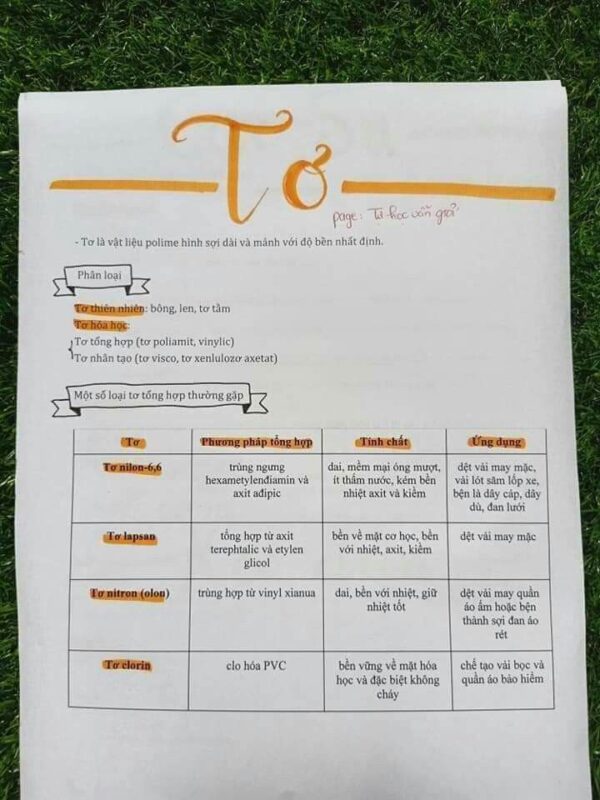 Tơ
page: Tự học vẫn giỏi
- Tơ là vật liệu polime hình sợi dài và mảnh với độ bền nhất định.
Phân loại
Tơ thiên nhiên: bông, len, tơ tằm
Tơ hóa học:
Tơ tổng hợp (tơ poliamit, vinylic)
Tơ nhân tạo (tơ visco, tơ xenlulozơ axetat)
Một số loại tơ tổng hợp thường gặp
Tơ Phương pháp tổng hợp Tính chất Ứng dụng
Tơ nilon-6,6 trùng ngưng dai, mềm mại óng mượt, dệt vải may mặc,
hexametylendiamin và ít thấm nước, kém bền vải lót săm lốp xe,
axit ađipic nhiệt axit và kiềm bện là dây cáp, dây
dù, đan lưới
Tơ lapsan tổng hợp từ axit bền về mặt cơ học, bền dệt vải may mặc
terephtalic và etylen với nhiệt, axit, kiềm
glicol
Tơ nitron (olon) trùng hợp từ vinyl xianua dai, bền với nhiệt, giữ dệt vải may quần
nhiệt tốt áo ấm hoặc bện
thành sợi đan áo
rét
Tơ clorin clo hóa PVC bền vững về mặt hóa chế tạo vải bọc và
học và đặc biệt không quần áo bảo hiểm
cháy